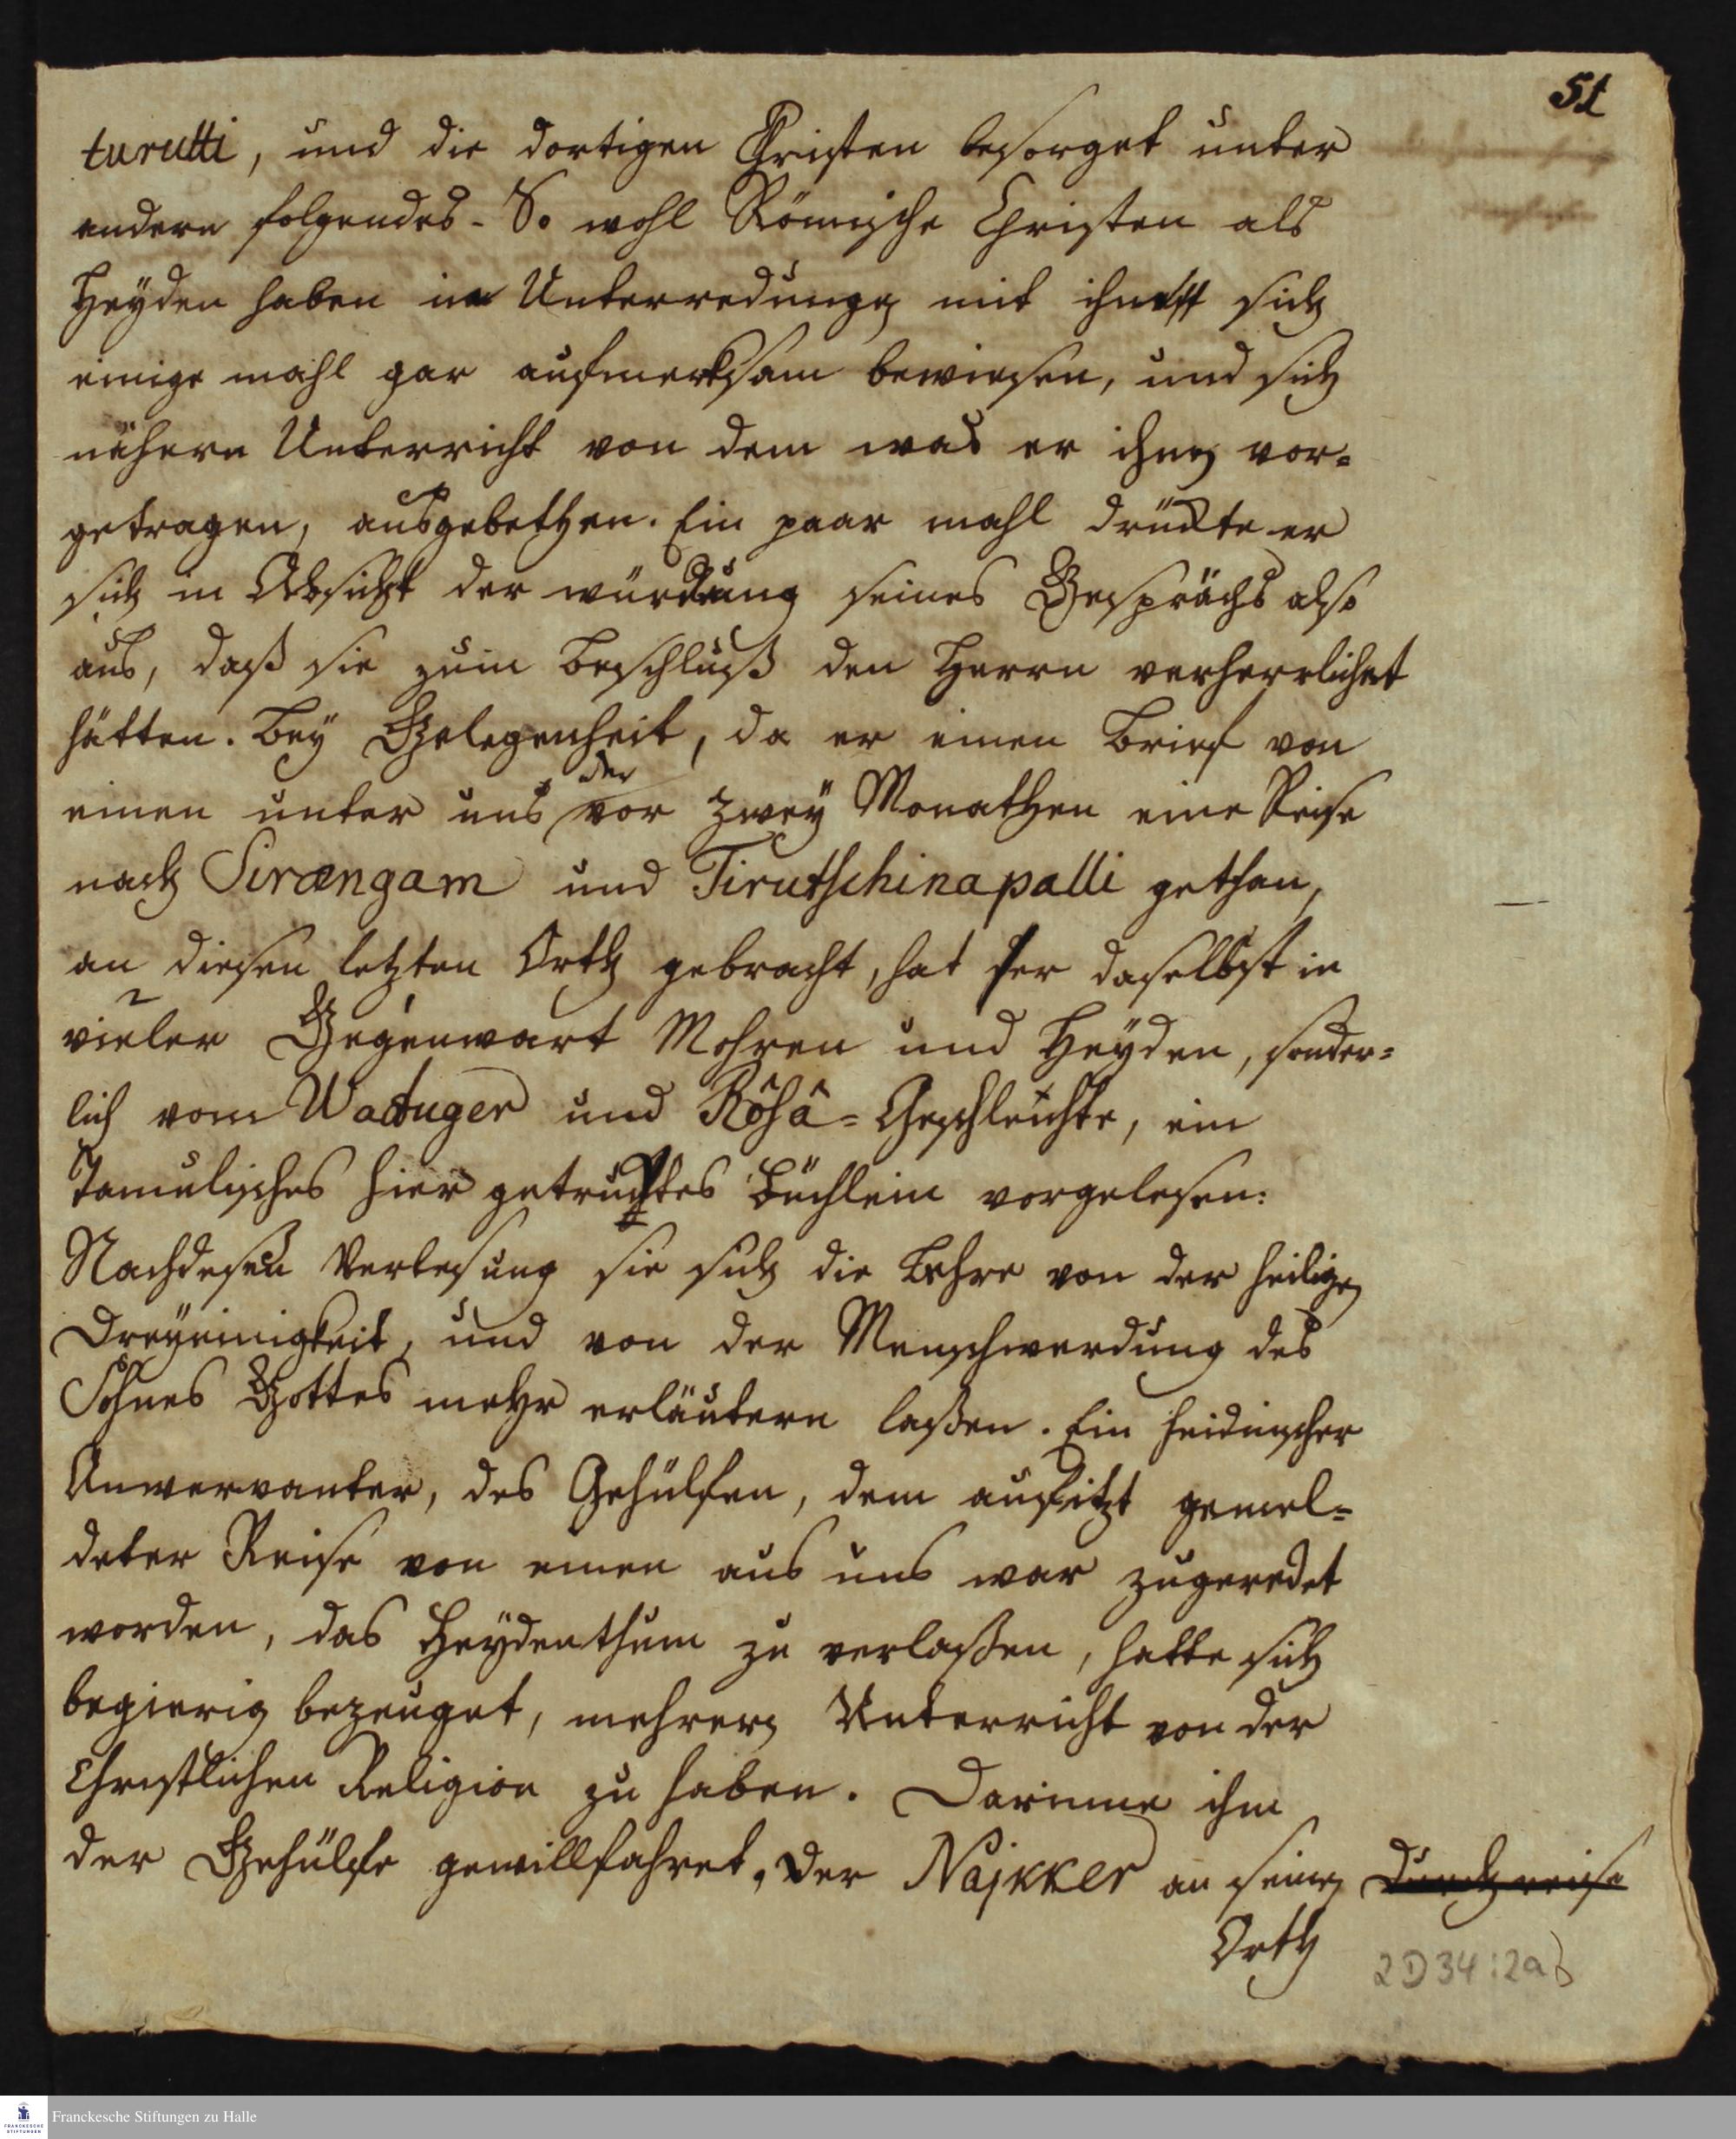 51
turutti, und die dortigen Christen besorget unter
andern folgendes. So wohl Römische Christen als
Heyden haben in Unterredungen mit ihm sich
einige mahl gar aufmerksam bewiesen, und sich
nähern Unterricht von dem was er ihnen vor-
getragen, ausgebethen. Ein paar mahl drückte er
sich in Absicht der würckung seines Gesprächs also
aus, daß sie zum Beschluß den Herrn verherrlichet
hätten. Bey Gelegenheit, da er einen Brief von
der
einen unter uns vor zwey Monathen eine Reise
nach Sirængam und Tirutschinapalli gethan,
an diesen letzten Orth gebracht, hat er daselbst in
vieler Gegenwart Mohren und Heyden, sonder-
lich vom Waduger und Rôsâ-Geschlechte, ein
Tamulisches hier getrucktes Büchlein vorgelesen:
Nachdesen Verlesung sie sich die Lehre von der heiligen
Dreyeinigkeit, und von der Menschwerdung des
Sohnes Gottes mehr erläutern laßen. Ein heidnischer
Anwervanter, des Gehülfen, dem auf itzt gemel-
deter Reise von einen aus uns war zugeredet
worden, das Heydenthum zu verlaßen, hatte sich
begierig bezeuget, mehrern Unterricht von der
Christlichen Religion zu haben. Darinne ihm
der Gehülfe gewillfahret. Der Najkker an seinen Durchreise
Orth
2D34:2ab
Franckesche Stiftungen zu Halle
FRANCKESCHE
STIFTUNGEN